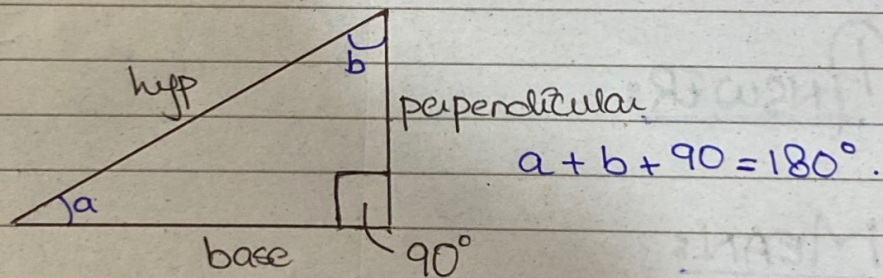 b
hyp
perpendicular
a + b + 90 = 180°.
a
base
90°